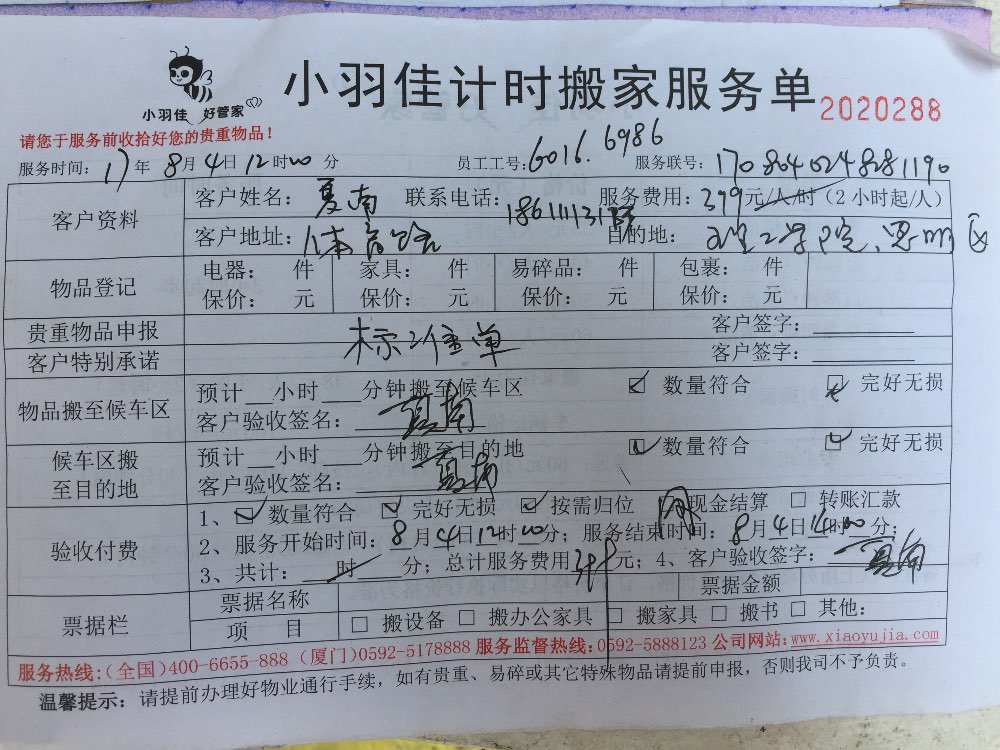 小羽佳 好管家
小羽佳计时搬家服务单 2020288
请您于服务前收拾好您的贵重物品！
服务时间：17年8月4日12时00分 员工工号：6016.6986 服务联号：1708040248281190
客户资料 客户姓名：夏南 联系电话： 服务费用：399元/人/时（2小时起/人）
客户地址：体育路 目的地：理工学院、思明区
物品登记 电器： 件 家具： 件 易碎品： 件 包裹： 件
保价： 元 保价： 元 保价： 元 保价： 元
贵重物品申报 客户签字：
标准单
客户特别承诺 客户签字：
物品搬至候车区 预计 小时 分钟搬至候车区 数量符合 完好无损
客户验收签名：夏南
候车区搬至目的地 预计 小时 分钟搬至目的地 数量符合 完好无损
客户验收签名：夏南
验收付费 1、数量符合 完好无损 按需归位 网 现金结算 转账汇款
2、服务开始时间：8月4日12时00分；服务结束时间：8月4日14时00分；
3、共计： 时 分；总计服务费用 元；4、客户验收签字：夏南
票据栏 票据名称 票据金额
项 目 搬设备 搬办公家具 搬家具 搬书 其他：
服务热线：(全国)400-6655-888 (厦门)0592-5178888 服务监督热线：0592-5888123 公司网站：www.xiaoyujia.com
温馨提示：请提前办理好物业通行手续，如有贵重、易碎或其它特殊物品请提前申报，否则我司不予负责。